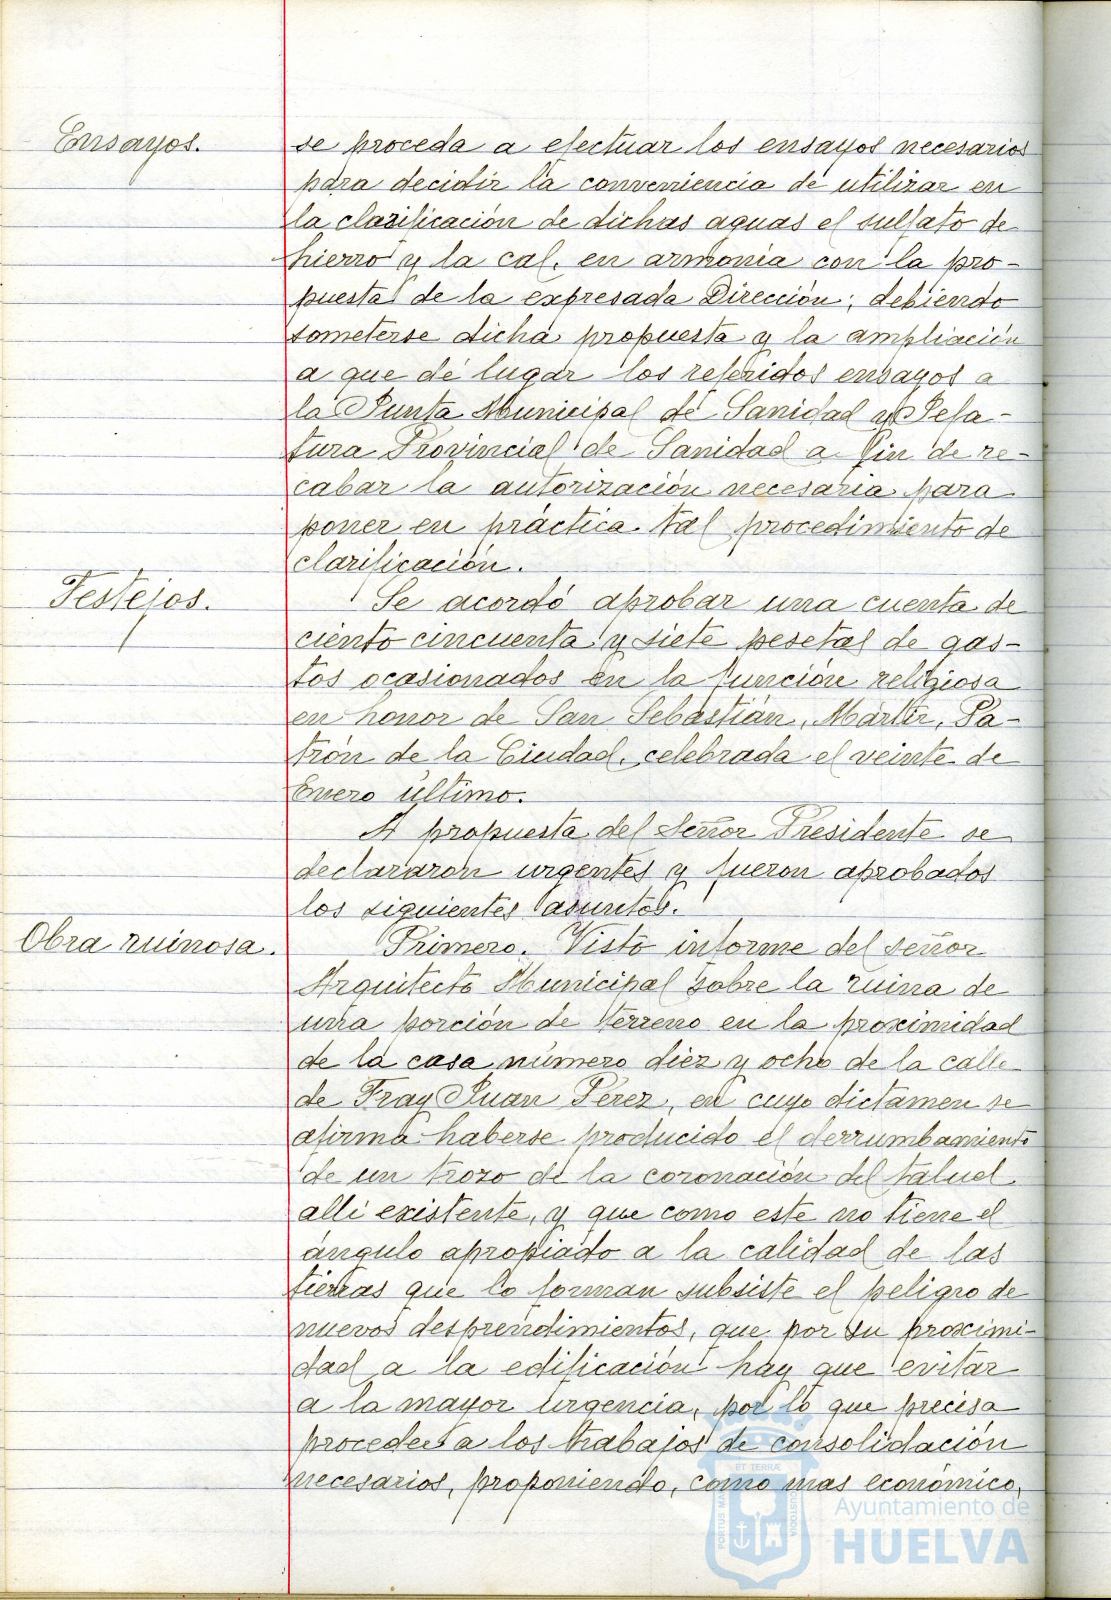 Ensayos.
se proceda a efectuar los ensayos necesarios
para decidir la conveniencia de utilizar en
la clarificación de dichas aguas el sulfato de
hierro y la cal, en armonía con la pro-
puesta de la expresada Dirección; debiendo
someterse dicha propuesta y la ampliación
a que dé lugar los referidos ensayos a
la Junta Municipal de Sanidad y Jefa-
tura Provincial de Sanidad a fin de re-
cabar la autorización necesaria para
poner en práctica tal procedimiento de
clarificación.
Festejos.
Se acordó aprobar una cuenta de
ciento cincuenta y siete pesetas de gas-
tos ocasionados en la función religiosa
en honor de San Sebastián, Mártir, Pa-
trón de la Ciudad, celebrada el veinte de
Enero último.
A propuesta del Señor Presidente se
declararon urgentes y fueron aprobados
los siguientes asuntos.
Obra ruinosa.
Primero. Visto informe del señor
Arquitecto Municipal sobre la ruina de
una porción de terreno en la proximidad
de la casa número diez y ocho de la calle
de Fray Juan Pérez, en cuyo dictamen se
afirma haberse producido el derrumbamiento
de un trozo de la coronación del talud
allí existente, y que como este no tiene el
ángulo apropiado a la calidad de las
tierras que lo forman subsiste el peligro de
nuevos desprendimientos, que por su proximi-
dad a la edificación hay que evitar
a la mayor urgencia, por lo que precisa
proceder a los trabajos de consolidación
necesarios, proponiendo, como mas económico,
ET TERRÆ
PORTUS MA
CUSTODIA
Ayuntamiento de
HUELVA